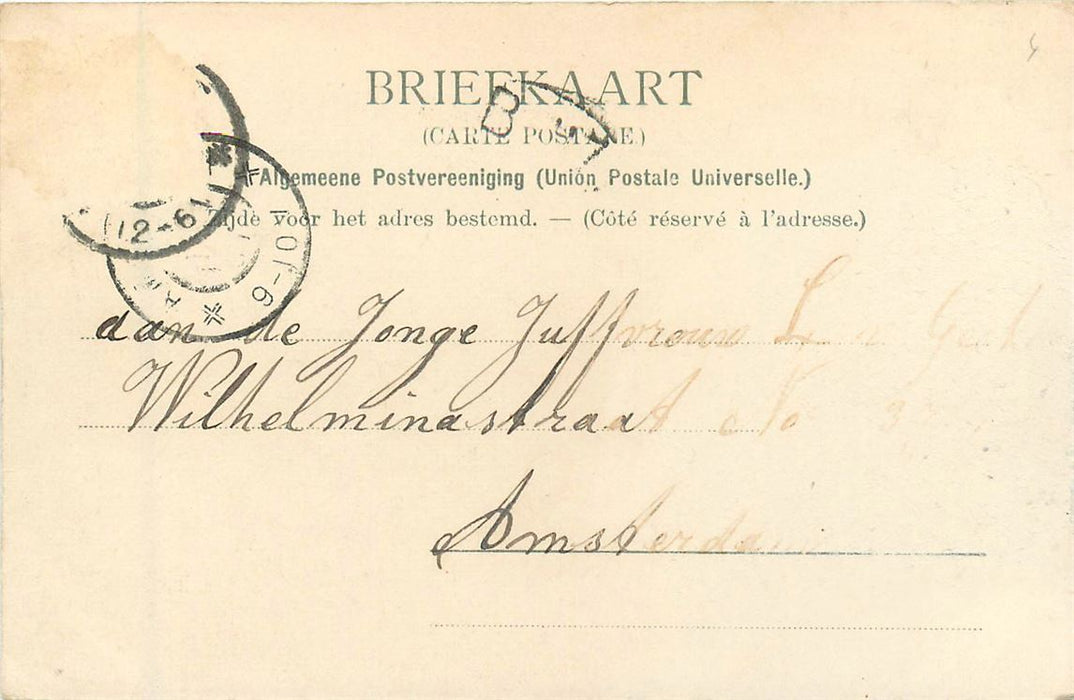 BRIEFKAART
(CARTE POSTALE.)
Algemeene Postvereeniging (Union Postale Universelle.)
Zijde voor het adres bestemd. — (Côté réservé à l'adresse.)
12-6
aan de Jonge Juffvrouw L
Wilhelminastraat No
Amsterdam